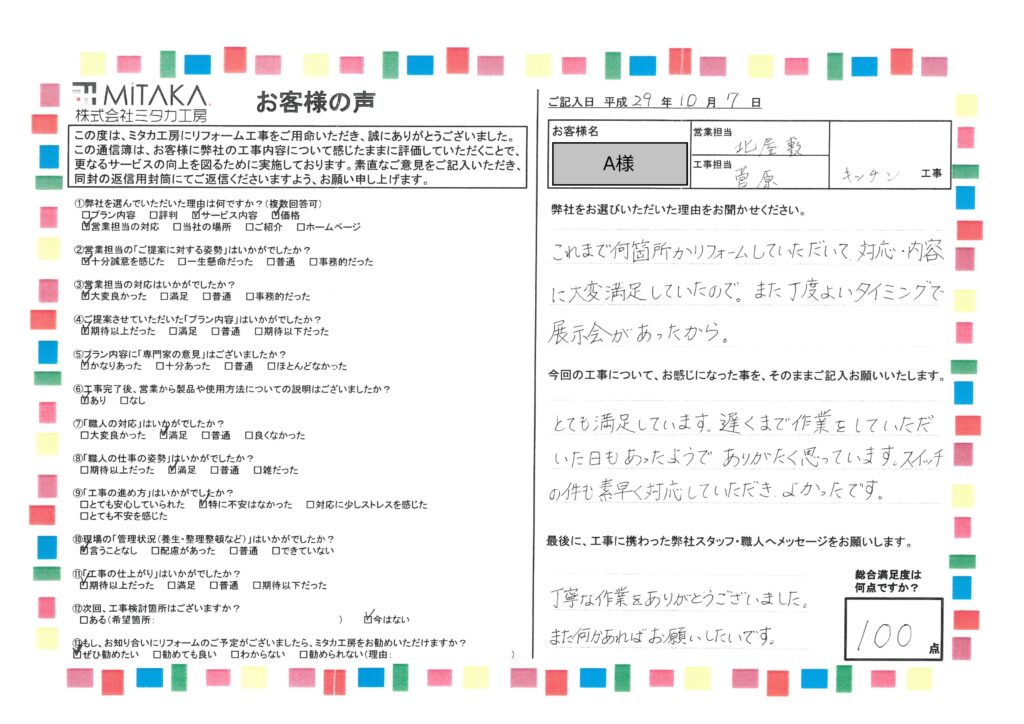 MiTAKA
株式会社ミタカ工房
お客様の声
この度は、ミタカ工房にリフォーム工事をご用命いただき、誠にありがとうございました。
この通信簿は、お客様に弊社の工事内容について感じたままに評価していただくことで、
更なるサービスの向上を図るために実施しております。素直なご意見をご記入いただき、
同封の返信用封筒にてご返信くださいますよう、お願い申し上げます。
①弊社を選んでいただいた理由は何ですか?(複数回答可)
□プラン内容 □評判 ☑サービス内容 ☑価格
☑営業担当の対応 □当社の場所 □ご紹介 □ホームページ
②営業担当の「ご提案に対する姿勢」はいかがでしたか?
☑十分誠意を感じた □一生懸命だった □普通 □事務的だった
③営業担当の対応はいかがでしたか?
☑大変良かった □満足 □普通 □事務的だった
④ご提案させていただいた「プラン内容」はいかがでしたか?
☑期待以上だった □満足 □普通 □期待以下だった
⑤プラン内容に「専門家の意見」はございましたか?
☑かなりあった □十分あった □普通 □ほとんどなかった
⑥工事完了後、営業から製品や使用方法についての説明はございましたか?
☑あり □なし
⑦「職人の対応」はいかがでしたか?
□大変良かった ☑満足 □普通 □良くなかった
⑧「職人の仕事の姿勢」はいかがでしたか?
□期待以上だった ☑満足 □普通 □雑だった
⑨「工事の進め方」はいかがでしたか?
□とても安心していられた ☑特に不安はなかった □対応に少しストレスを感じた
□とても不安を感じた
⑩現場の「管理状況(養生・整理整頓など)」はいかがでしたか?
☑言うことなし □配慮があった □普通 □できていない
⑪「工事の仕上がり」はいかがでしたか?
☑期待以上だった □満足 □普通 □期待以下だった
⑫次回、工事検討箇所はございますか?
□ある(希望箇所: ) ☑今はない
⑬もし、お知り合いにリフォームのご予定がございましたら、ミタカ工房をお勧めいただけますか?
☑ぜひ勧めたい □勧めても良い □わからない □勧められない(理由: )
ご記入日 平成 29 年 10 月 7 日
お客様名
A様
営業担当
北屋敷
工事担当
菅原
キッチン 工事
弊社をお選びいただいた理由をお聞かせください。
これまで何箇所かリフォームしていただいて、対応・内容
に大変満足していたので。また丁度よいタイミングで
展示会があったから。
今回の工事について、お感じになった事を、そのままご記入お願いいたします。
とても満足しています。遅くまで作業をしていただ
いた日もあったようで、ありがたく思っています。スイッチ
の件も素早く対応していただき、よかったです。
最後に、工事に携わった弊社スタッフ・職人へメッセージをお願いします。
丁寧な作業をありがとうございました。
また何かあればお願いしたいです。
総合満足度は
何点ですか?
100 点